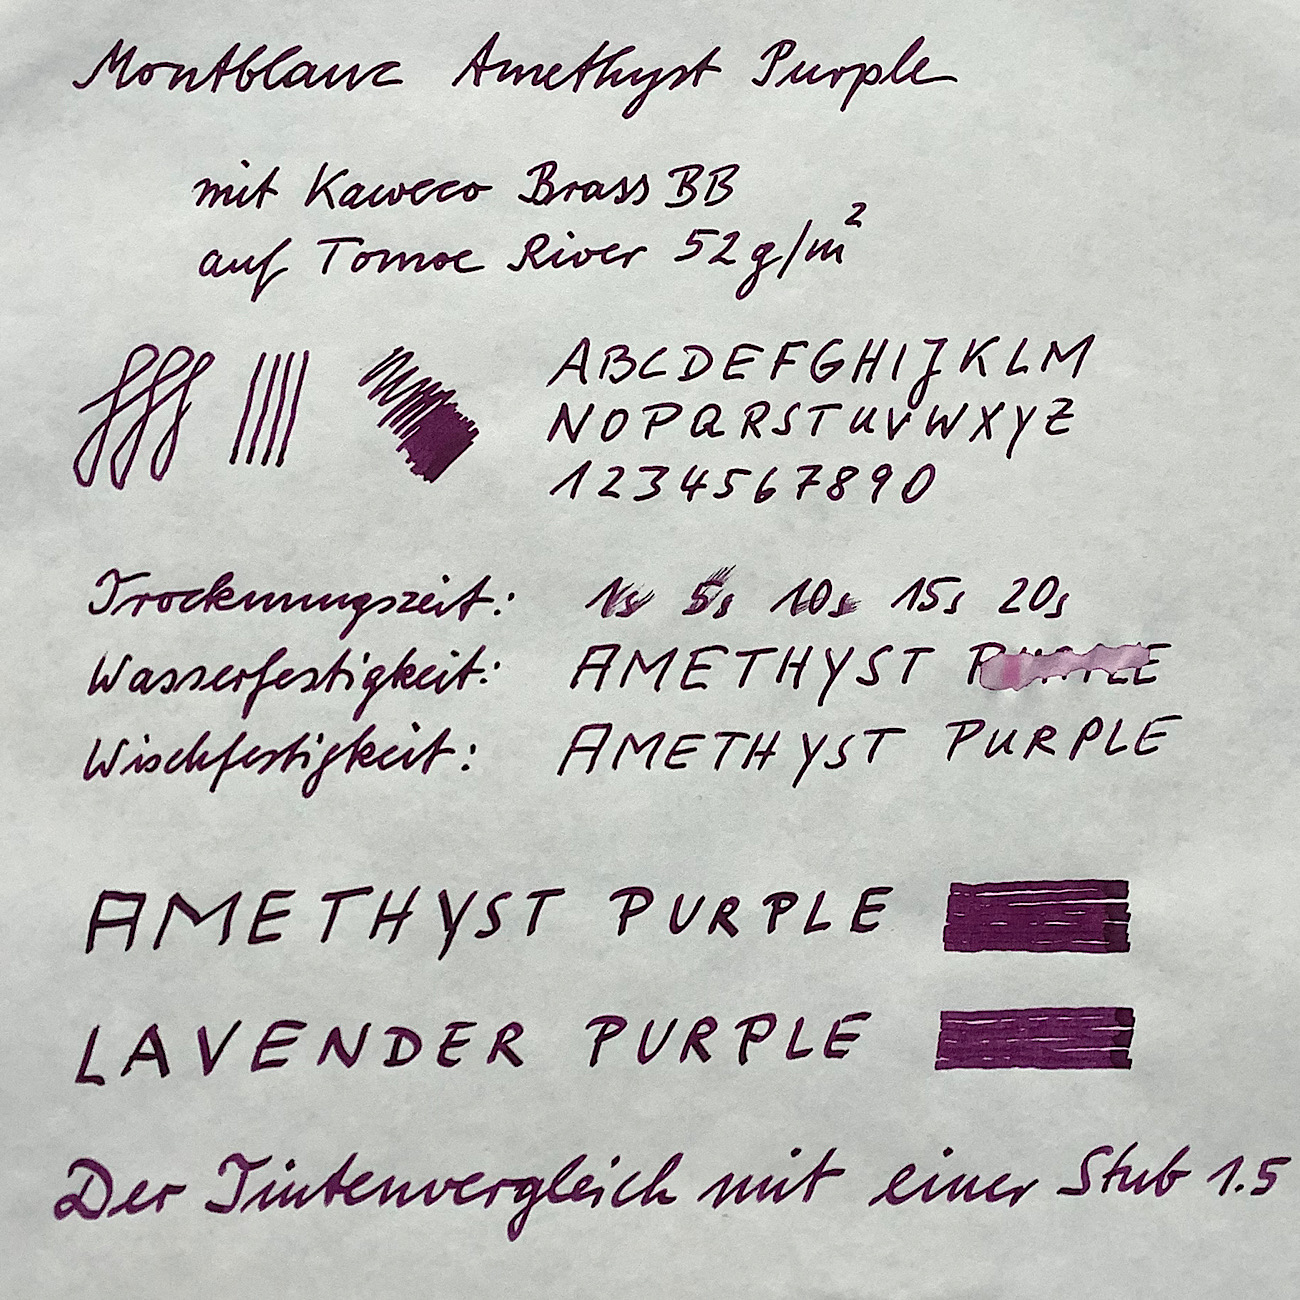 Montblanc Amethyst Purple
mit Kaweco Brass BB
auf Tomoe River 52 g/m²
ABCDEFGHIJKLM
NOPQRSTUVWXYZ
1234567890
Trocknungszeit: 1s 5s 10s 15s 20s
Wasserfestigkeit: AMETHYST PURPLE
Wischfestigkeit: AMETHYST PURPLE
AMETHYST PURPLE
LAVENDER PURPLE
Der Tintenvergleich mit einer Stub 1.5